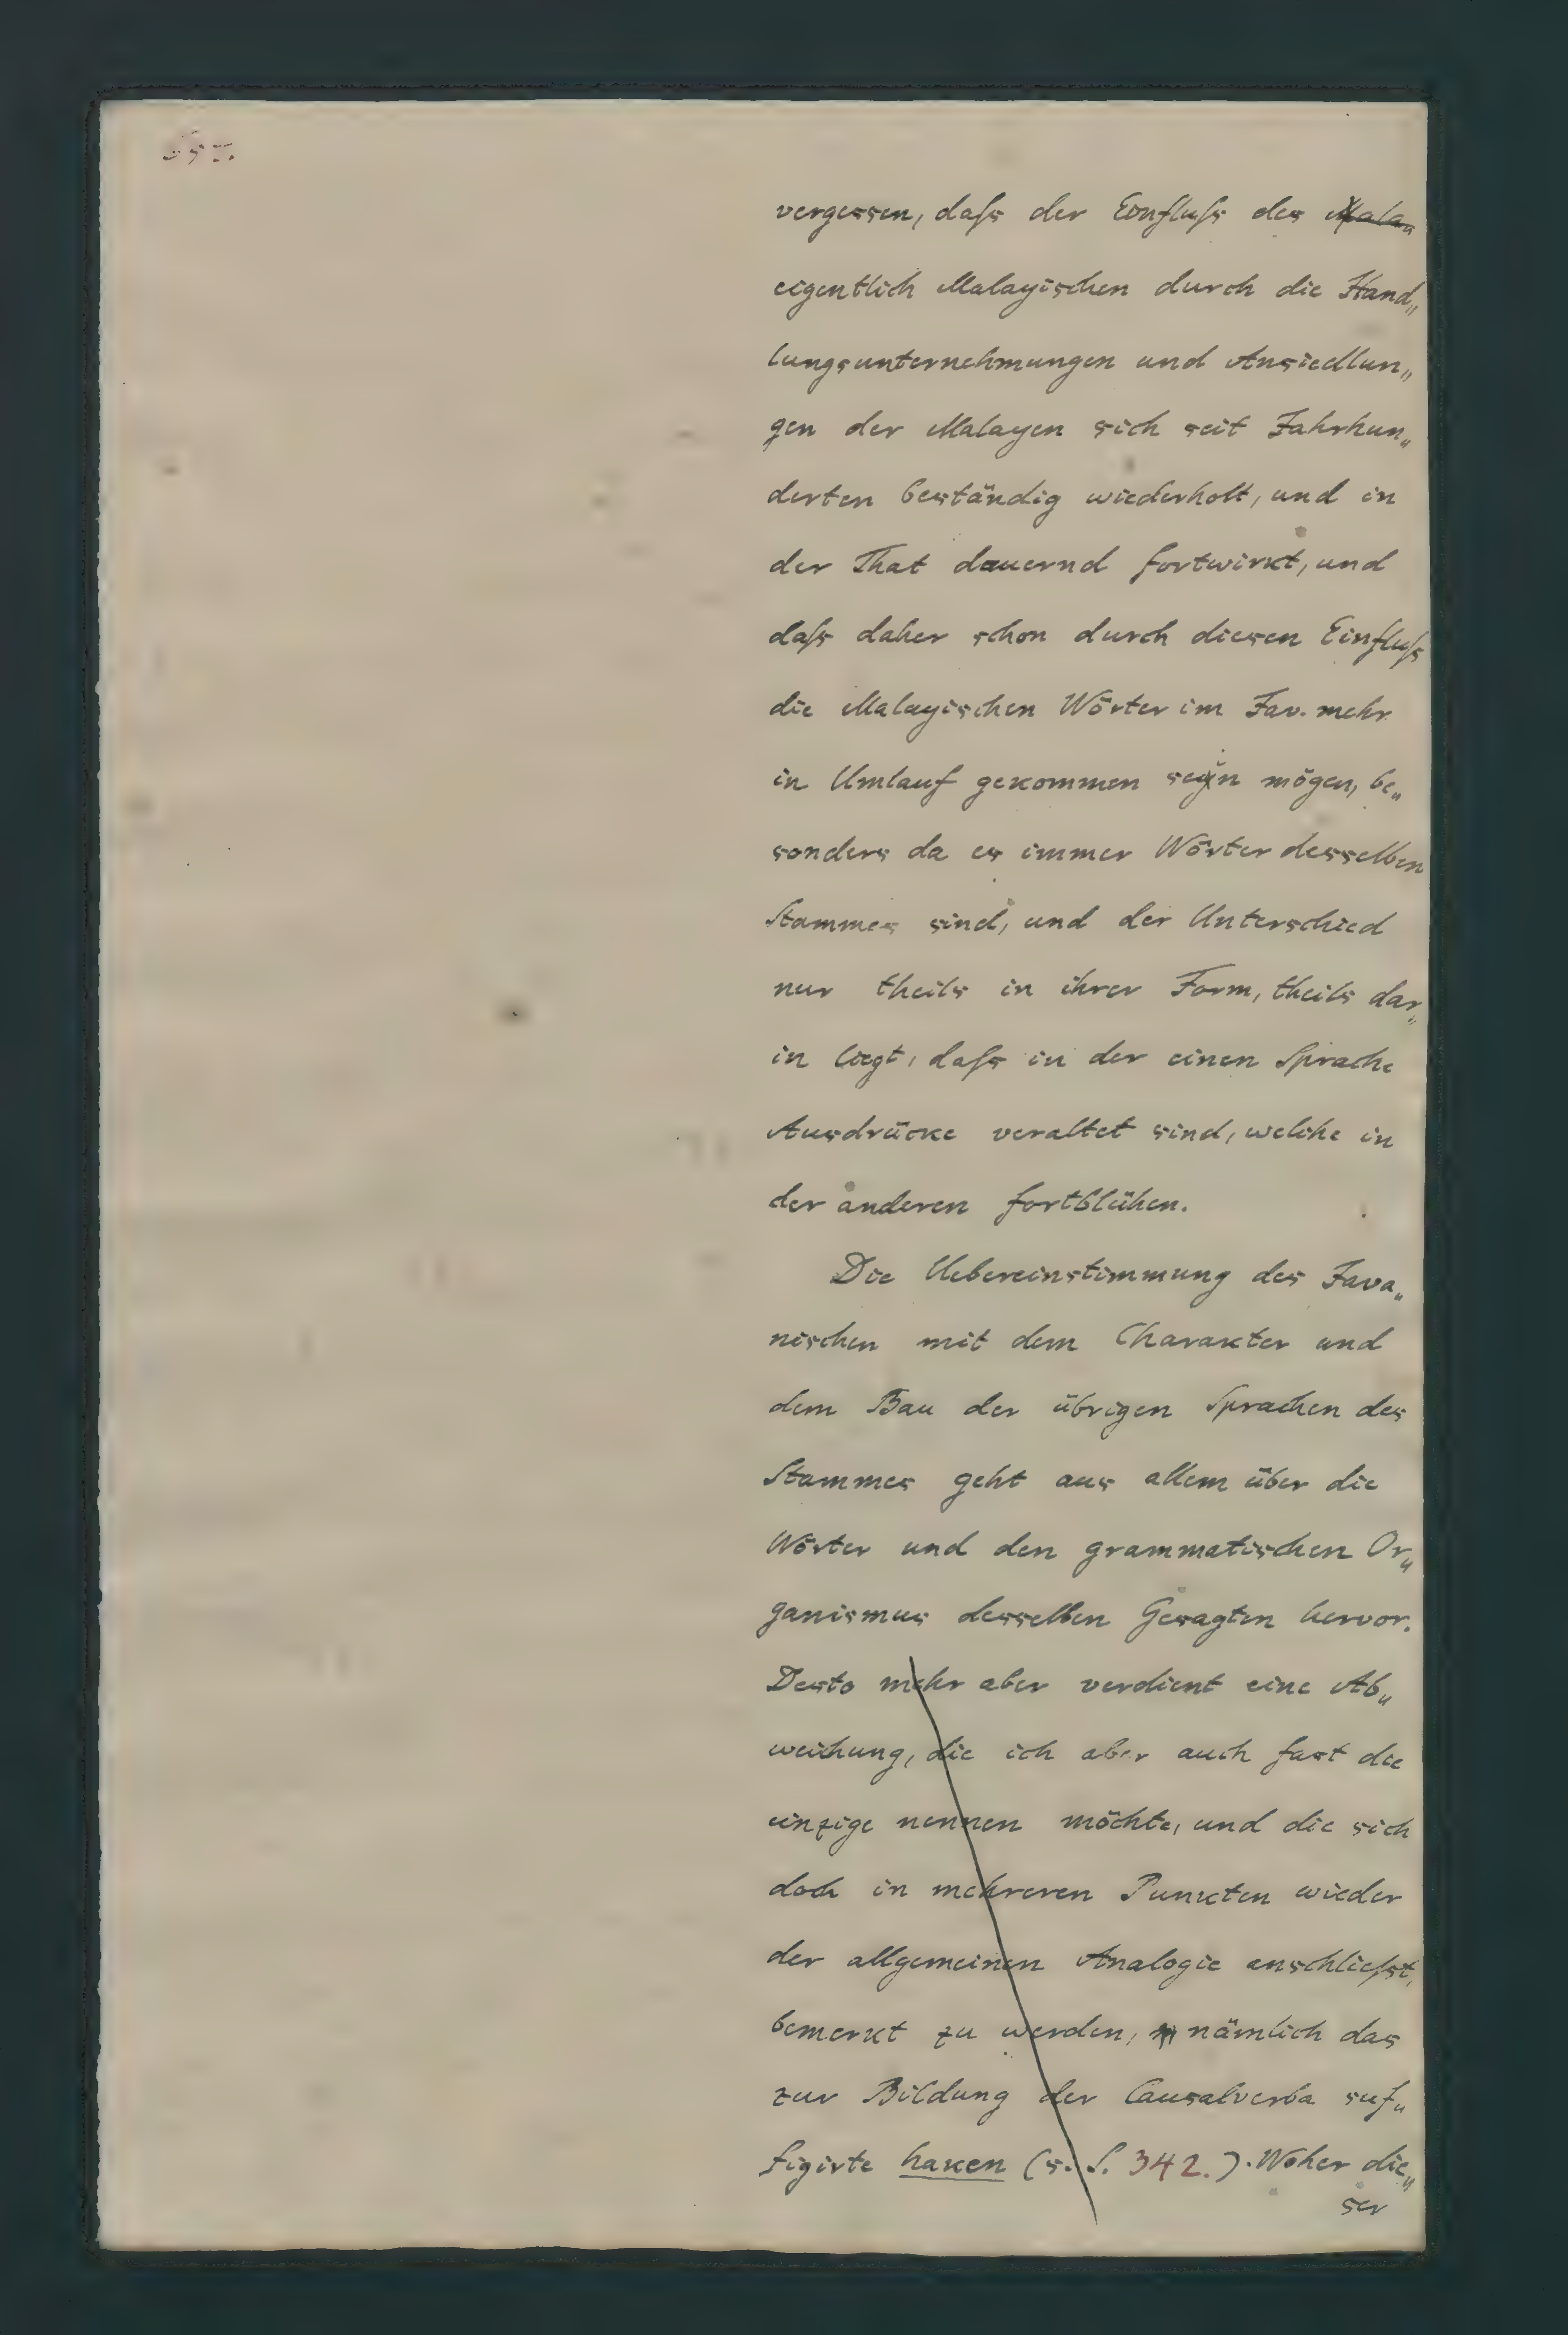 vergessen, daſs der Einfluſs des Mala„
eigentlich Malayischen durch die Hand„
lungsunternehmungen und Ansiedlun„
gen der Malayen sich seit Jahrhun„
derten beständig wiederholt, und in
der That dauernd fortwirkt, und
daſs daher schon durch diesen Einfluſs
die Malayischen Wörter im Jav. mehr
in Umlauf gekommen sein mögen, be„
sonders da es immer Wörter desselben
Stammes sind, und der Unterschied
nur theils in ihrer Form, theils dar„
in liegt, daſs in der einen Sprache
Ausdrücke veraltet sind, welche in
der anderen fortblühen.
Die Uebereinstimmung des Java„
nischen mit dem Charakter und
dem Bau der übrigen Sprachen des
Stammes geht aus allem über die
Wörter und den grammatischen Or„
ganismus desselben Gesagten hervor.
Desto mehr aber verdient eine Ab„
weichung, die ich aber auch fast die
einzige nennen möchte, und die sich
doch in mehreren Punkten wieder
der allgemeinen Analogie anschlieſst,
bemerkt zu werden, nämlich das
zur Bildung der Causalverba suf„
figirte haken (s. S. 342.). Woher die„
ser